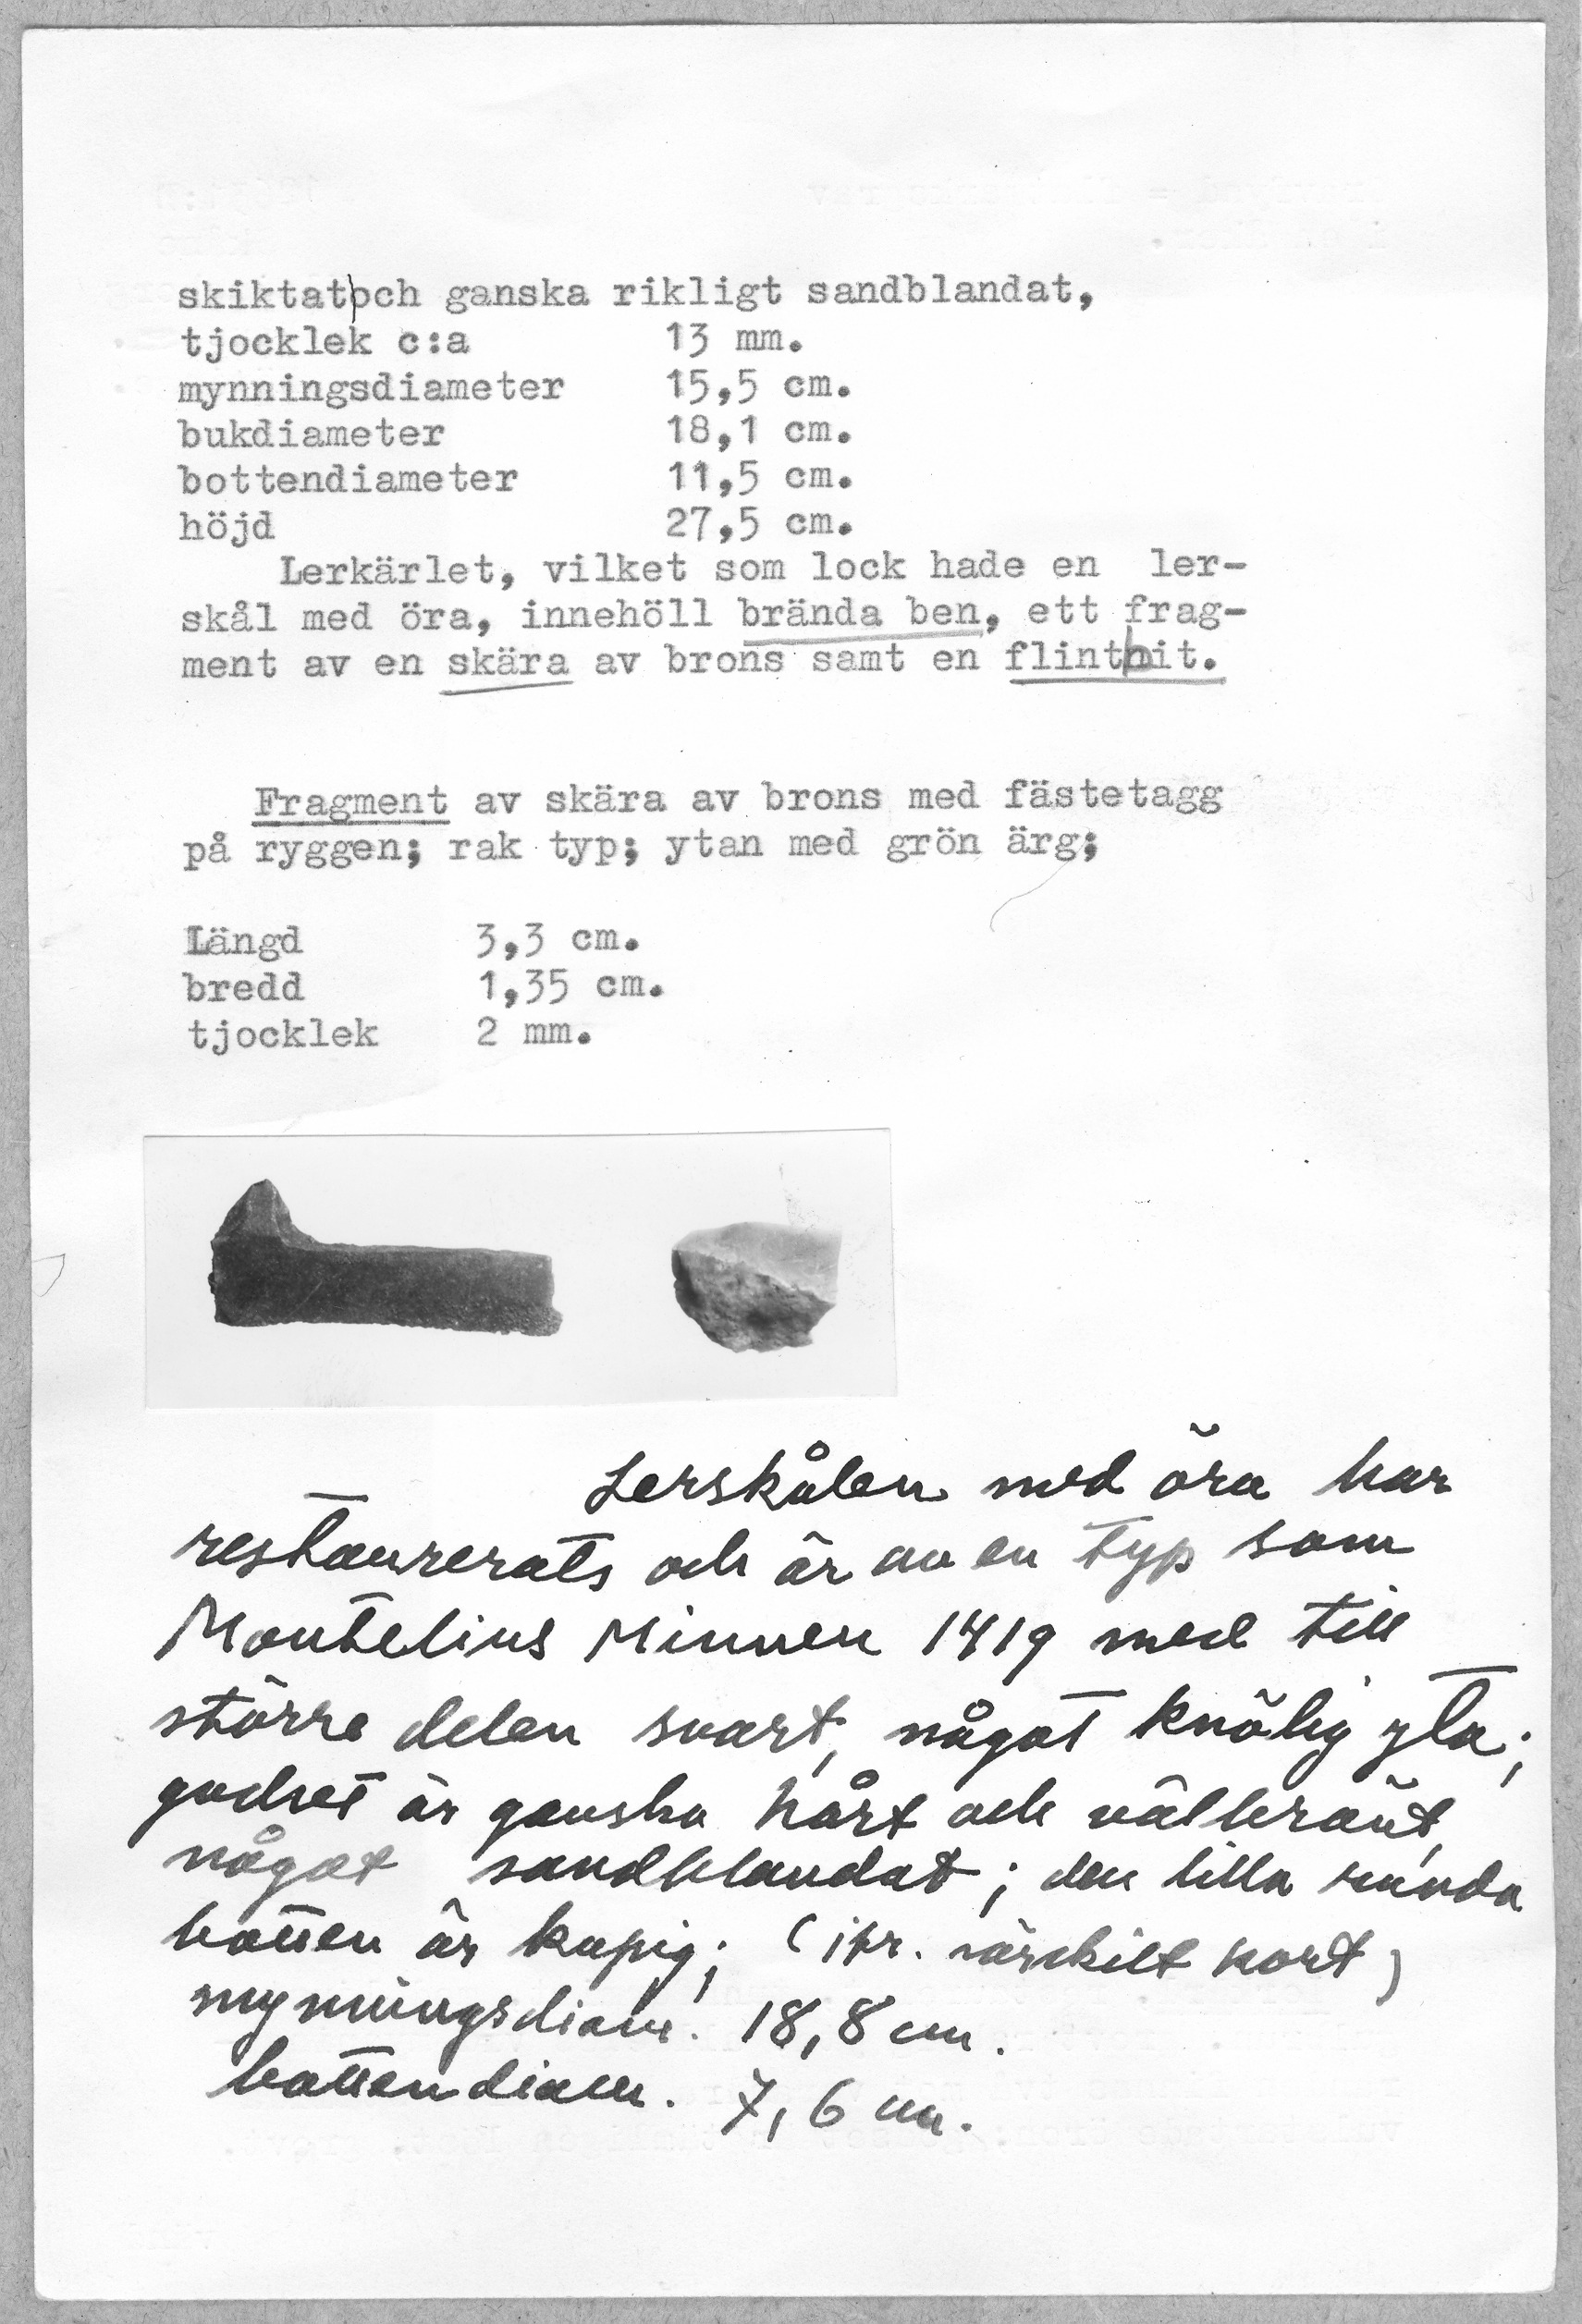 skiktat och ganska rikligt sandblandat,
tjocklek c:a 13 mm.
mynningsdiameter 15,5 cm.
bukdiameter 18,1 cm.
bottendiameter 11,5 cm.
höjd 27,5 cm.
Lerkärlet, vilket som lock hade en ler-
skål med öra, innehöll brända ben, ett frag-
ment av en skära av brons samt en flintbit.
Fragment av skära av brons med fästetagg
på ryggen; rak typ; ytan med grön ärg;
Längd 3,3 cm.
bredd 1,35 cm.
tjocklek 2 mm.
Lerskålen med öra har
restaurerats och är av en typ som
Montelius Minnen 1419 med till
större delen svart, något knölig yta;
godset är ganska hårt och välbränt,
något sandblandat; den lilla runda
botten är kupig; (jfr. särskilt kort)
mynningsdiam. 18,8 cm.
bottendiam. 7,6 cm.